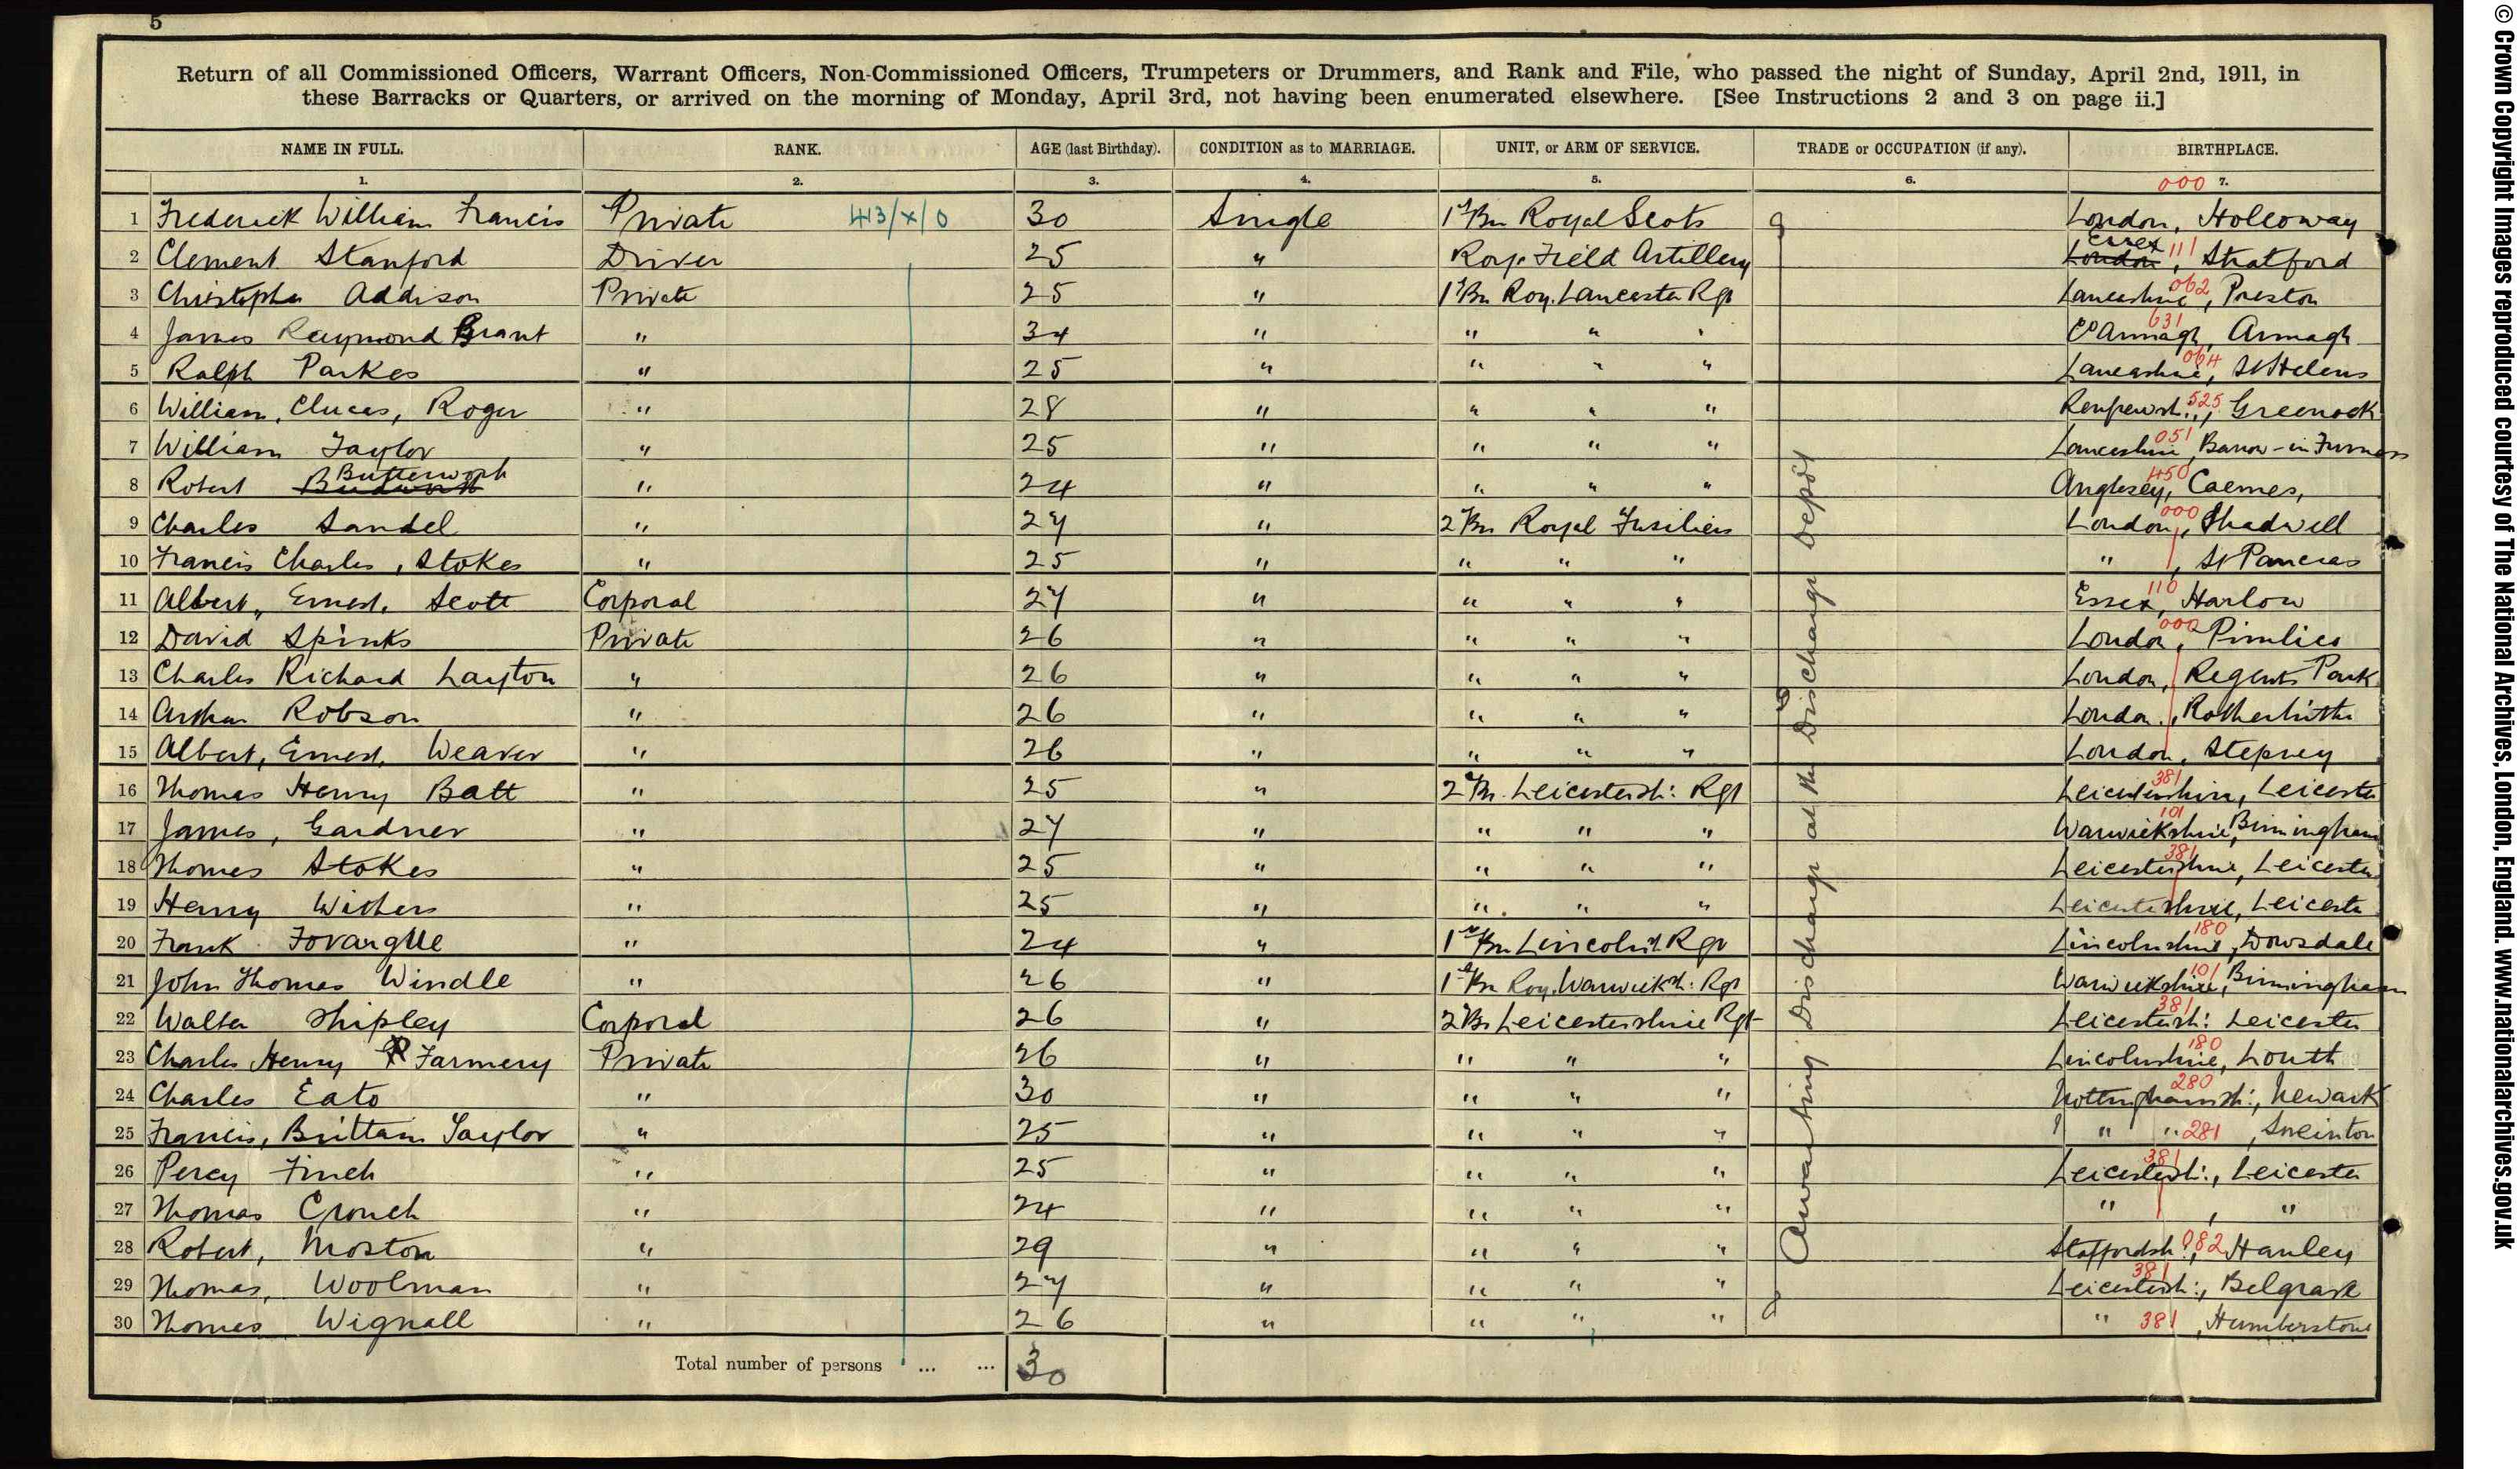 5
Return of all Commissioned Officers, Warrant Officers, Non-Commissioned Officers, Trumpeters or Drummers, and Rank and File, who passed the night of Sunday, April 2nd, 1911, in
these Barracks or Quarters, or arrived on the morning of Monday, April 3rd, not having been enumerated elsewhere. [See Instructions 2 and 3 on page ii.]
NAME IN FULL. RANK. AGE (last Birthday). CONDITION as to MARRIAGE. UNIT, or ARM OF SERVICE. TRADE or OCCUPATION (if any). BIRTHPLACE.
1. 2. 3. 4. 5. 6. 000 7.
1 Frederick William Francis Private 43/x/0 30 Single 1st Bn Royal Scots London, Holloway
2 Clement Stanford Driver 25 " Roy. Field Artillery London Essex 111, Stratford
3 Christopher Addison Private 25 " 1st Bn Roy. Lancaster Rgt Lancashire 062, Preston
4 James Raymond Grant " 34 " " " " Co Armagh 631, Armagh
5 Ralph Parkes " 25 " " " " Lancashire 064, St Helens
6 William, Clucas, Roger " 28 " " " " Renfrewsh: 525, Greenock
7 William Taylor " 25 " " " " Lancashire 051 Barrow-in-Furness
8 Robert Butterworth " 24 " " " " Anglesey, 450 Caemes,
9 Charles Sandel " 27 " 2 Bn Royal Fusiliers London, 000 Shadwell
10 Francis Charles, Stokes " 25 " " " " " , St Pancras
11 Albert, Ernest, Scott Corporal 27 " " " " Essex, 110 Harlow
12 David Spinks Private 26 " " " " London, 000 Pimlico
13 Charles Richard Layton " 26 " " " " London, Regents Park
14 Arthur Robson " 26 " " " " London, Rotherhithe
15 Albert, Ernest, Weaver " 26 " " " " London, Stepney
16 Thomas Henry Batt " 25 " 2d Bn. Leicestersh: Rgt Leicestershire, 381 Leicester
17 James, Gardner " 27 " " " " Warwickshire, 101 Birmingham
18 Thomas Stokes " 25 " " " " Leicestershire, 381 Leicester
19 Henry Withers " 25 " " " " Leicestershire, Leicester
20 Frank Fovargue " 24 " 1st Bn Lincolnsh Rgt Lincolnshire 180, Dowsdale
21 John Thomas Windle " 26 " 1st Bn Roy. Warwicksh: Rgt Warwickshire, 101 Birmingham
22 Walter Shipley Corporal 26 " 2 Bn Leicestershire Rgt Leicestersh: 381 Leicester
23 Charles Henry R Farmery Private 26 " " " " Lincolnshire, 180 Louth
24 Charles Eato " 30 " " " " Nottinghamsh:, 280 Newark
25 Francis, Brittain Taylor " 25 " " " " " " 281, Sneinton
26 Percy Finch " 25 " " " " Leicestersh:, 381 Leicester
27 Thomas Crouch " 24 " " " " " , "
28 Robert, Moston " 29 " " " " Staffordsh:, 082 Hanley
29 Thomas, Woolman " 27 " " " " Leicestersh:, 381 Belgrave
30 Thomas Wignall " 26 " " " " " 381, Humberstone
Awaiting Discharge at the Discharge Depôt
Total number of persons ... ... 30
© Crown Copyright Images reproduced courtesy of The National Archives, London, England. www.nationalarchives.gov.uk